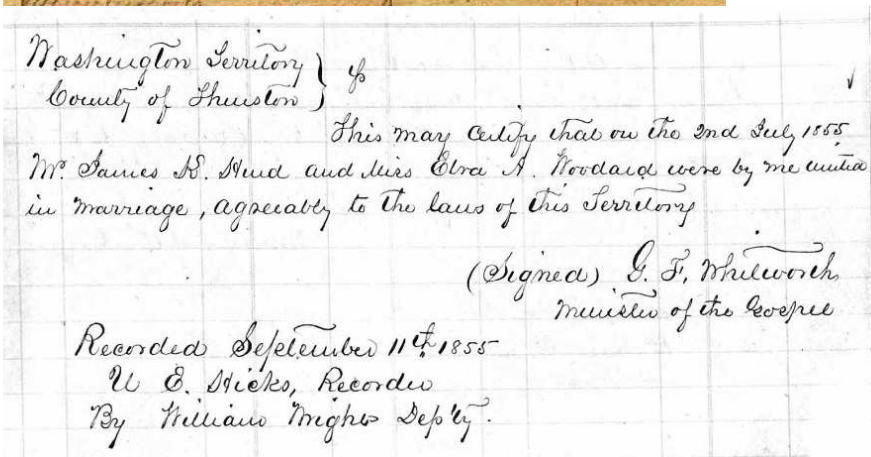 Washington Territory
County of Thurston } ss
This may certify that on the 2nd July 1855
Mr. James K. Hurd and Miss Elva A. Woodard were by me united
in marriage, agreeably to the laws of this Territory
(Signed) G. F. Whitworth
Minister of the Gospel
Recorded September 11th 1855
U E. Hicks, Recorder
By William Wright Dep'ty.